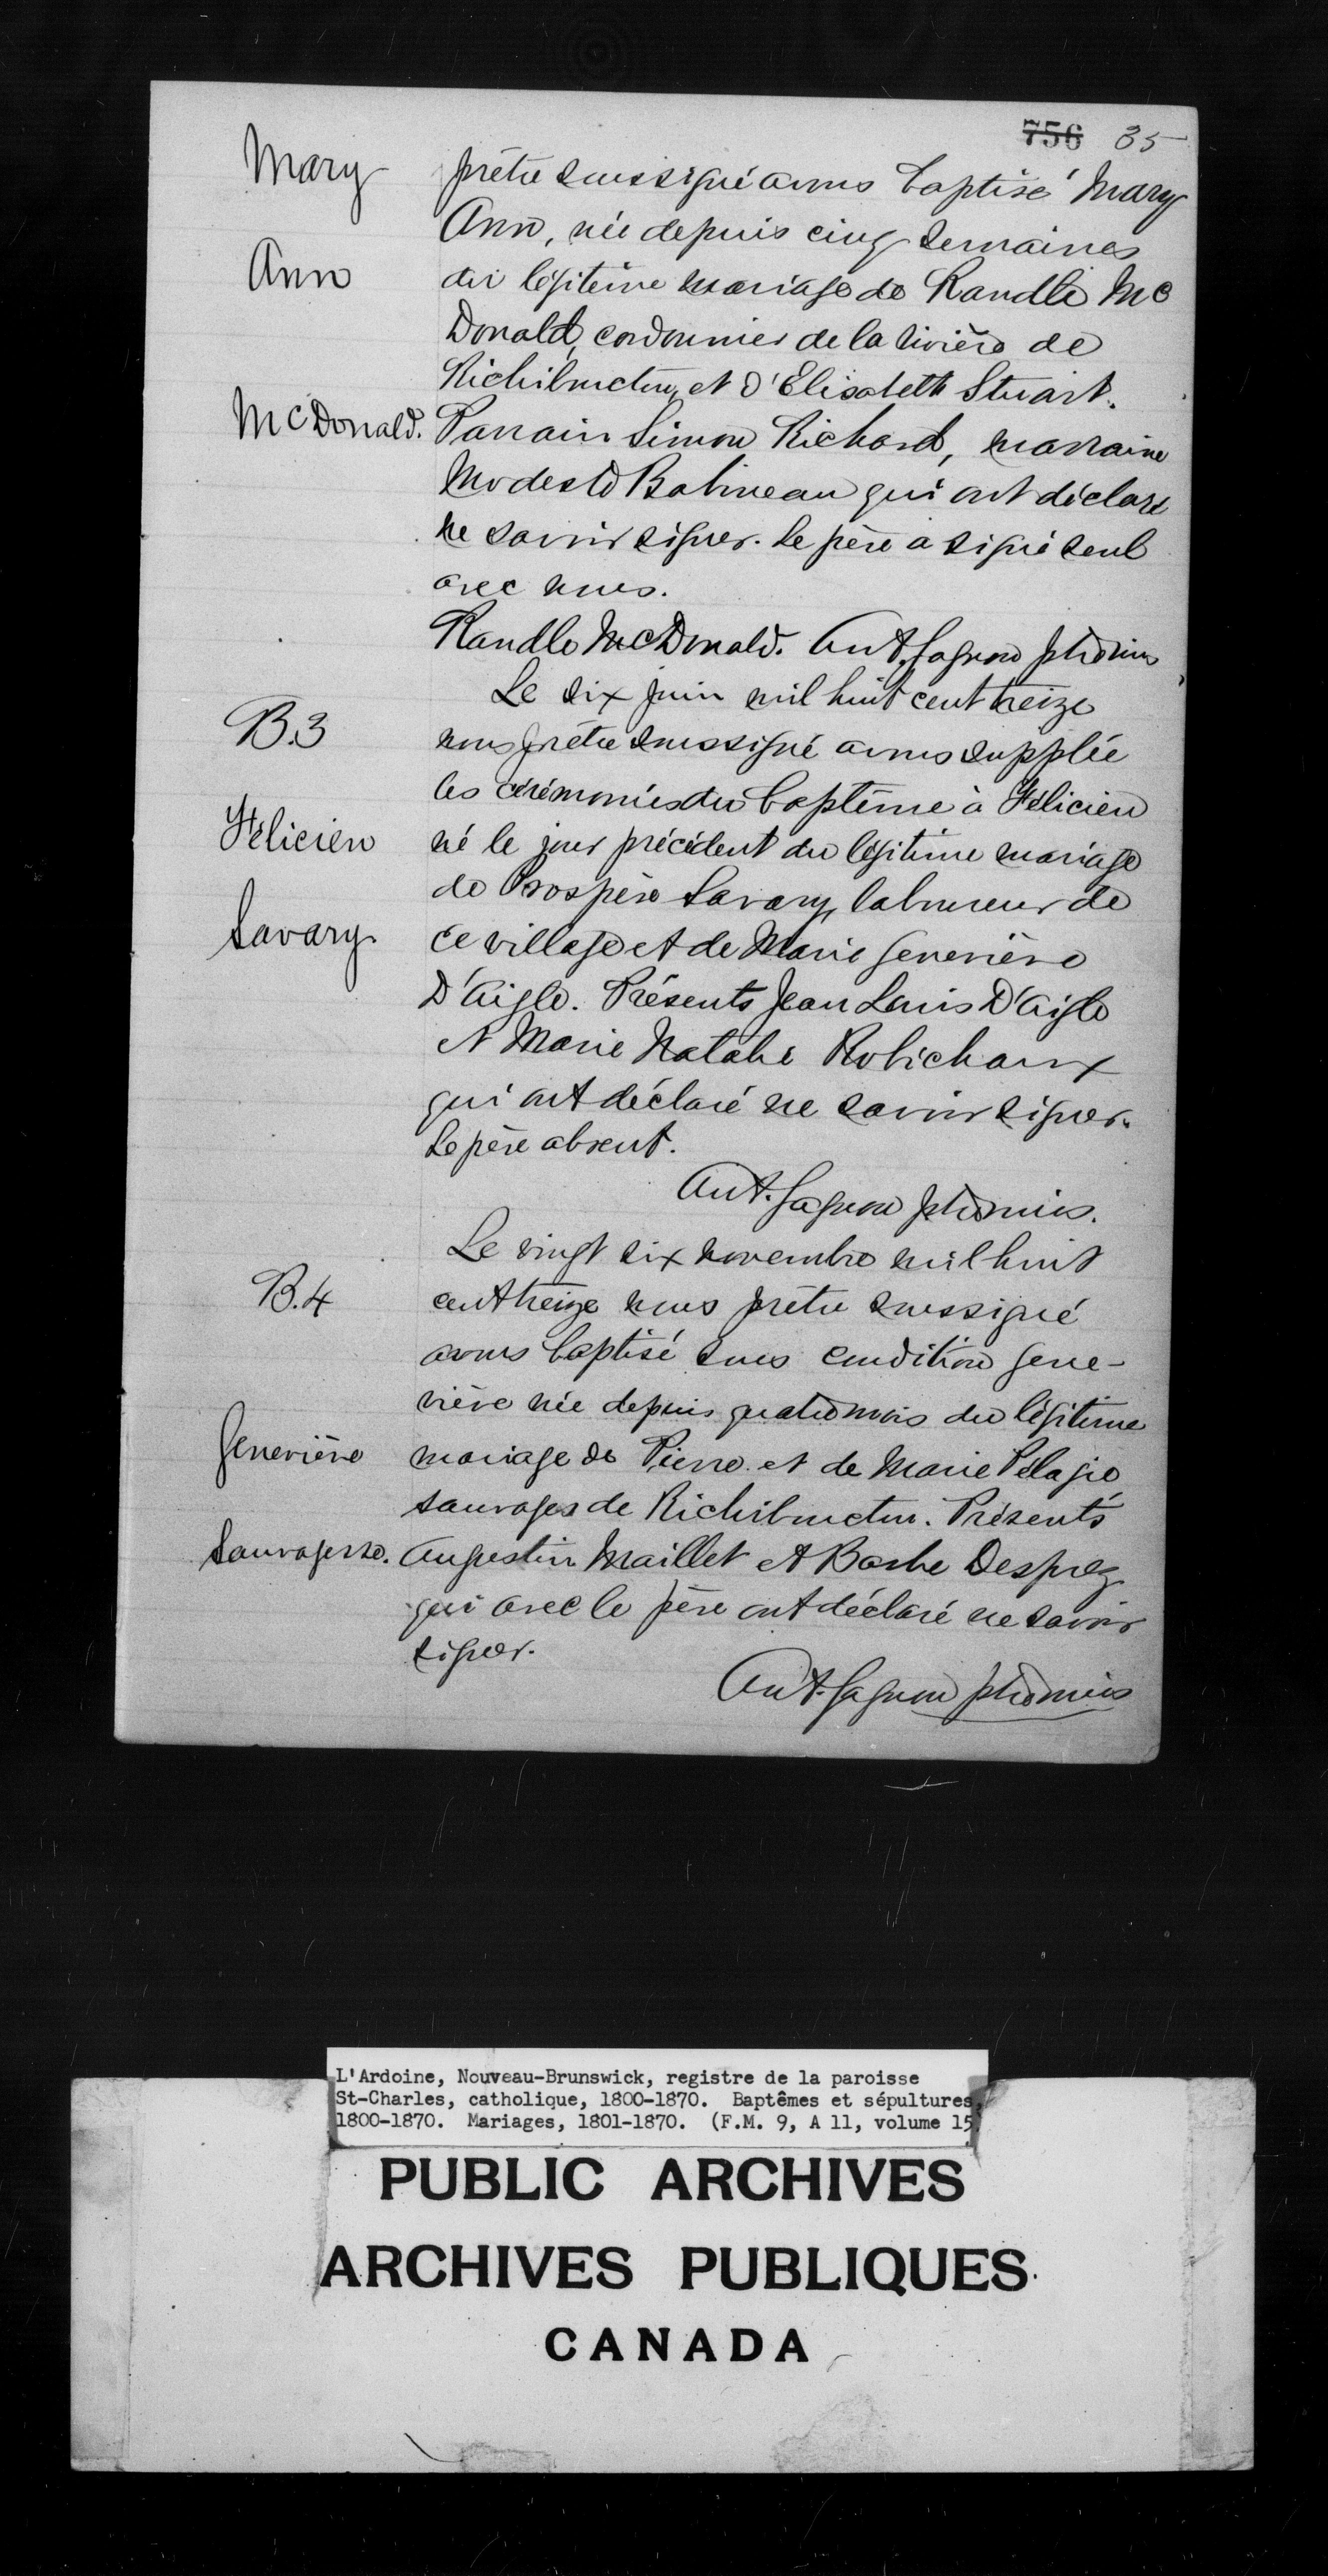 756 35
Mary
Ann
McDonald.
prêtre soussigné avons baptisé Mary
Ann, née depuis cinq semaines
du légitime mariage de Randle Mc
Donald, cordonnier de la rivière de
Richibouctou, et d'Elisabeth Stuart.
Parrain Simon Richard, marraine
Modeste Babineau qui ont déclaré
ne savoir signer. Le père a signé seul
avec nous.
Randle McDonald. Ant. Gagnon ptre miss
B.3
Félicien
Savary.
Le six juin mil huit cent treize
nous prêtre soussigné avons supplée
les cérémonies du baptême à Félicien
né le jour précédent du légitime mariage
de Prospère Savary, laboureur de
ce village et de Marie Geneviève
D'Aigle. Présents Jean Louis D'Aigle
et Marie Natalie Robichaux
qui ont déclaré ne savoir signer.
Le père absent.
Ant. Gagnon ptre miss.
B.4
Geneviève
Sauvagesse.
Le vingt six novembre mil huit
cent treize nous prêtre soussigné
avons baptisé sous condition Gene-
viève née depuis quatre mois du légitime
mariage de Pierre et de Marie Pélagie
sauvages de Richibouctou. Présents
Augustin Maillet et Barbe Desprez
qui avec le père ont déclaré ne savoir
signer.
Ant. Gagnon ptre miss
L'Ardoine, Nouveau-Brunswick, registre de la paroisse
St-Charles, catholique, 1800-1870. Baptêmes et sépultures,
1800-1870. Mariages, 1801-1870. (F.M. 9, A 11, volume 15
PUBLIC ARCHIVES
ARCHIVES PUBLIQUES
CANADA